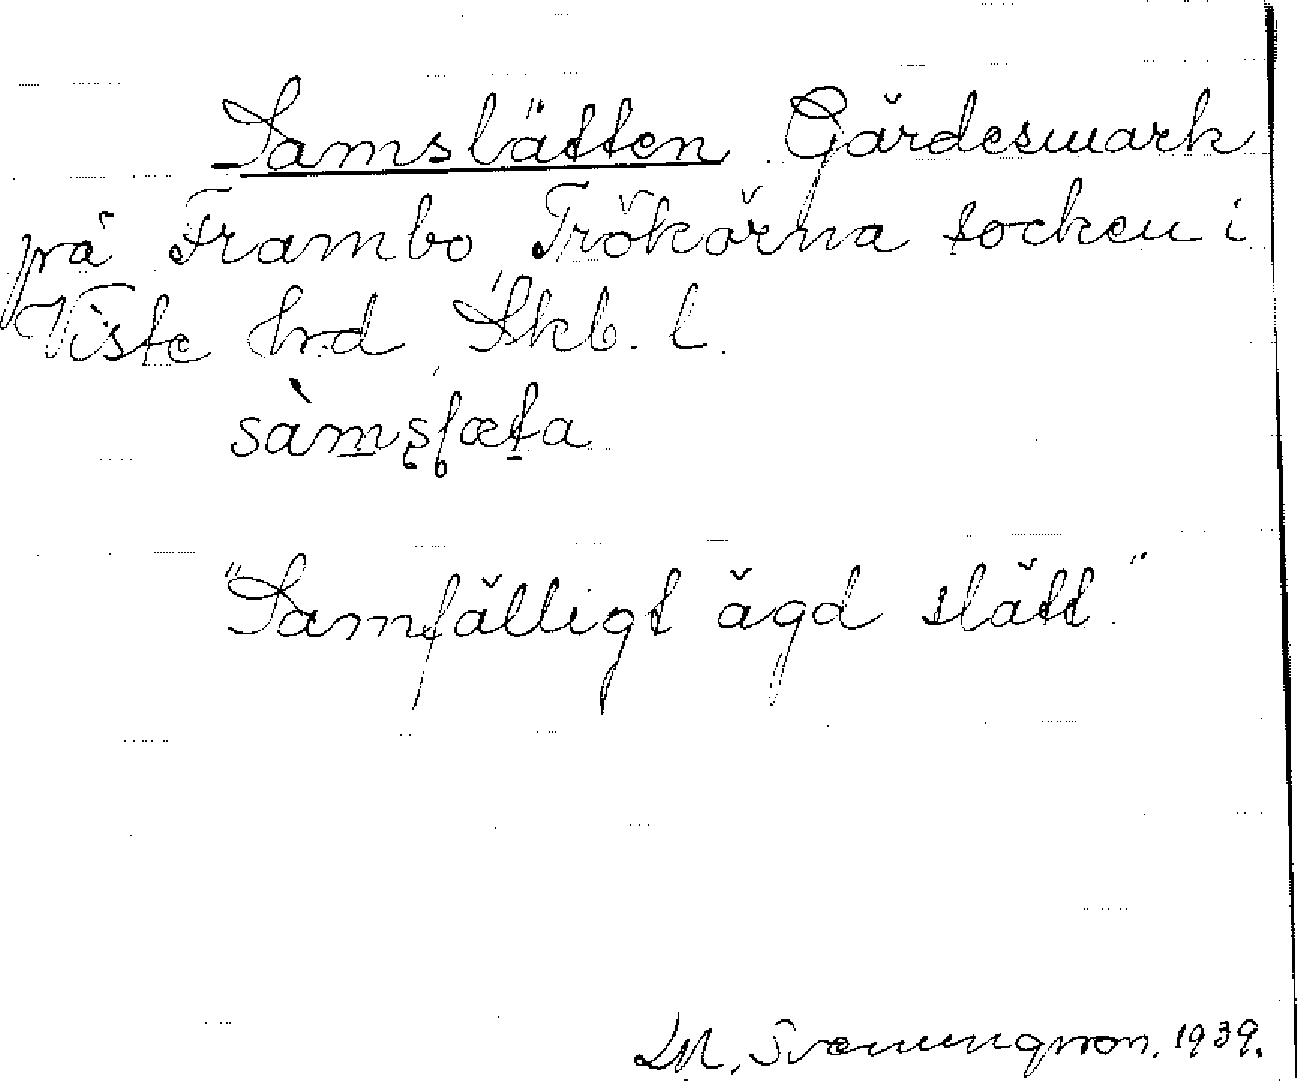 Samslätten. Gärdesmark
på Frambo, Trökörna socken i
Viste hrd, Skb. l.
sàmsʃæta
"Samfälligt ägd slätt."
Svenungsson. 1939.